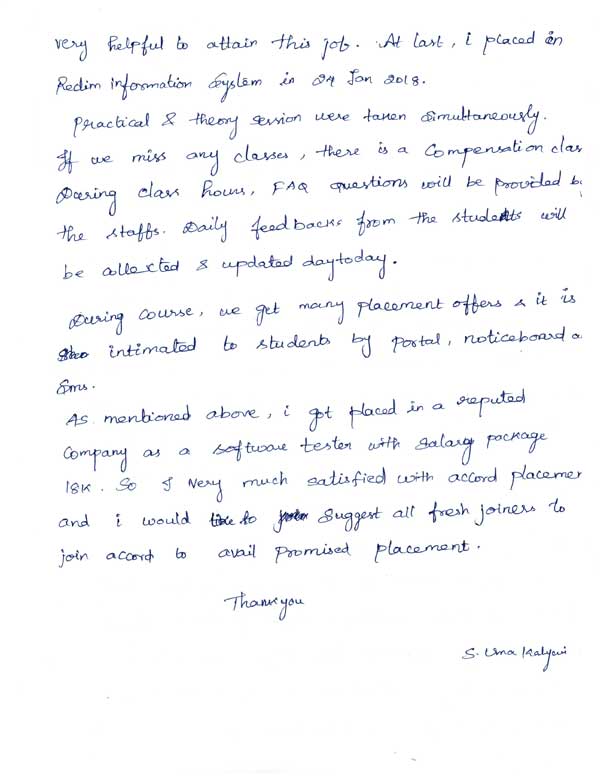 very helpful to attain this job. At last, i placed in
Redim information System in 24 Jan 2018.
Practical & theory session were taken Simultaneously.
If we miss any classes, there is a Compensation clas
During class hours, FAQ questions will be provided b
the staffs. Daily feedbacks from the students will
be collected & updated daytoday.
During course, we get many placement offers & it is
intimated to students by portal, noticeboard a
Sms.
As mentioned above, i got placed in a reputed
Company as a software tester with salary package
18K. So I very much satisfied with accord placemen
and i would like to suggest all fresh joiners to
join accord to avail Promised placement.
Thankyou
S. Uma Kalyani